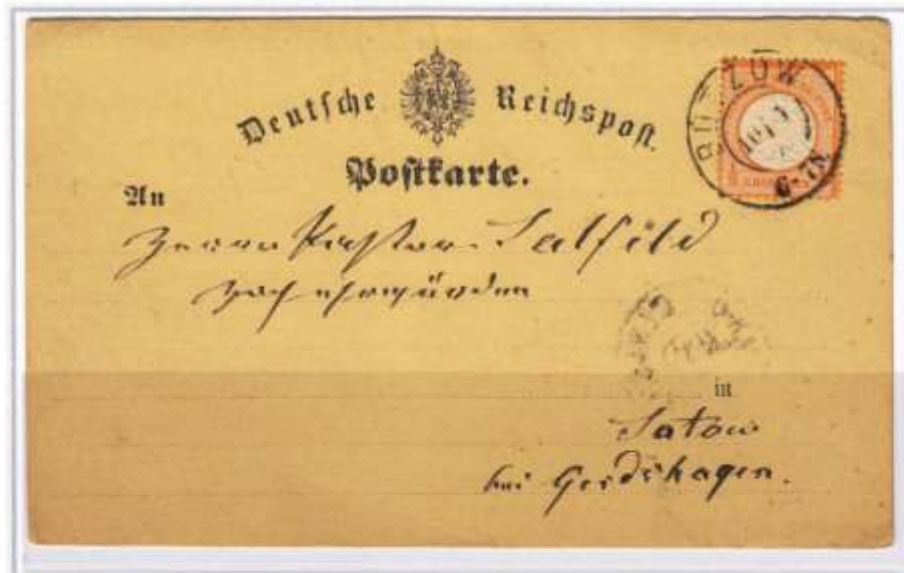 Deutsche Reichspost.
Postkarte.
BÜTZOW
6-7N.
An
Herrn Pastor Salfeld
Hochehrwürden
in
Satow
bei Gerdshagen.